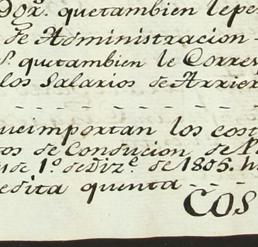 Dor. quetambien leper
de Administracion
S. quetambien le Corres
los Salarios de Arrier
- - - - - - - -
ueimportan los cost
tos de Conducion de
de 1º. de Dizᵉ. de 1805. h
edita quenta - - -
COS